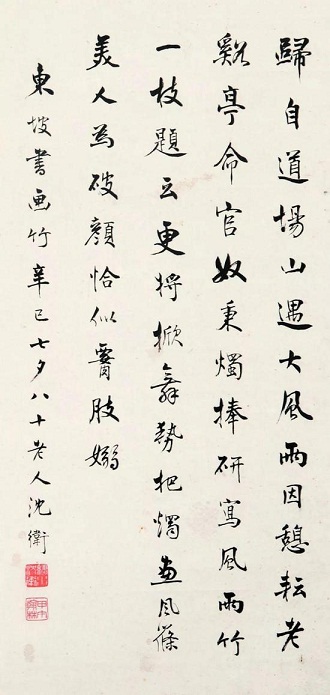 歸自道場山遇大風雨因憩耘老
谿亭命官奴秉燭捧研寫風雨竹
一枝題云更將掀舞勢把燭畫風篠
美人為破顏恰似腰肢嫋
東坡書画竹辛巳七夕八十老人沈衛